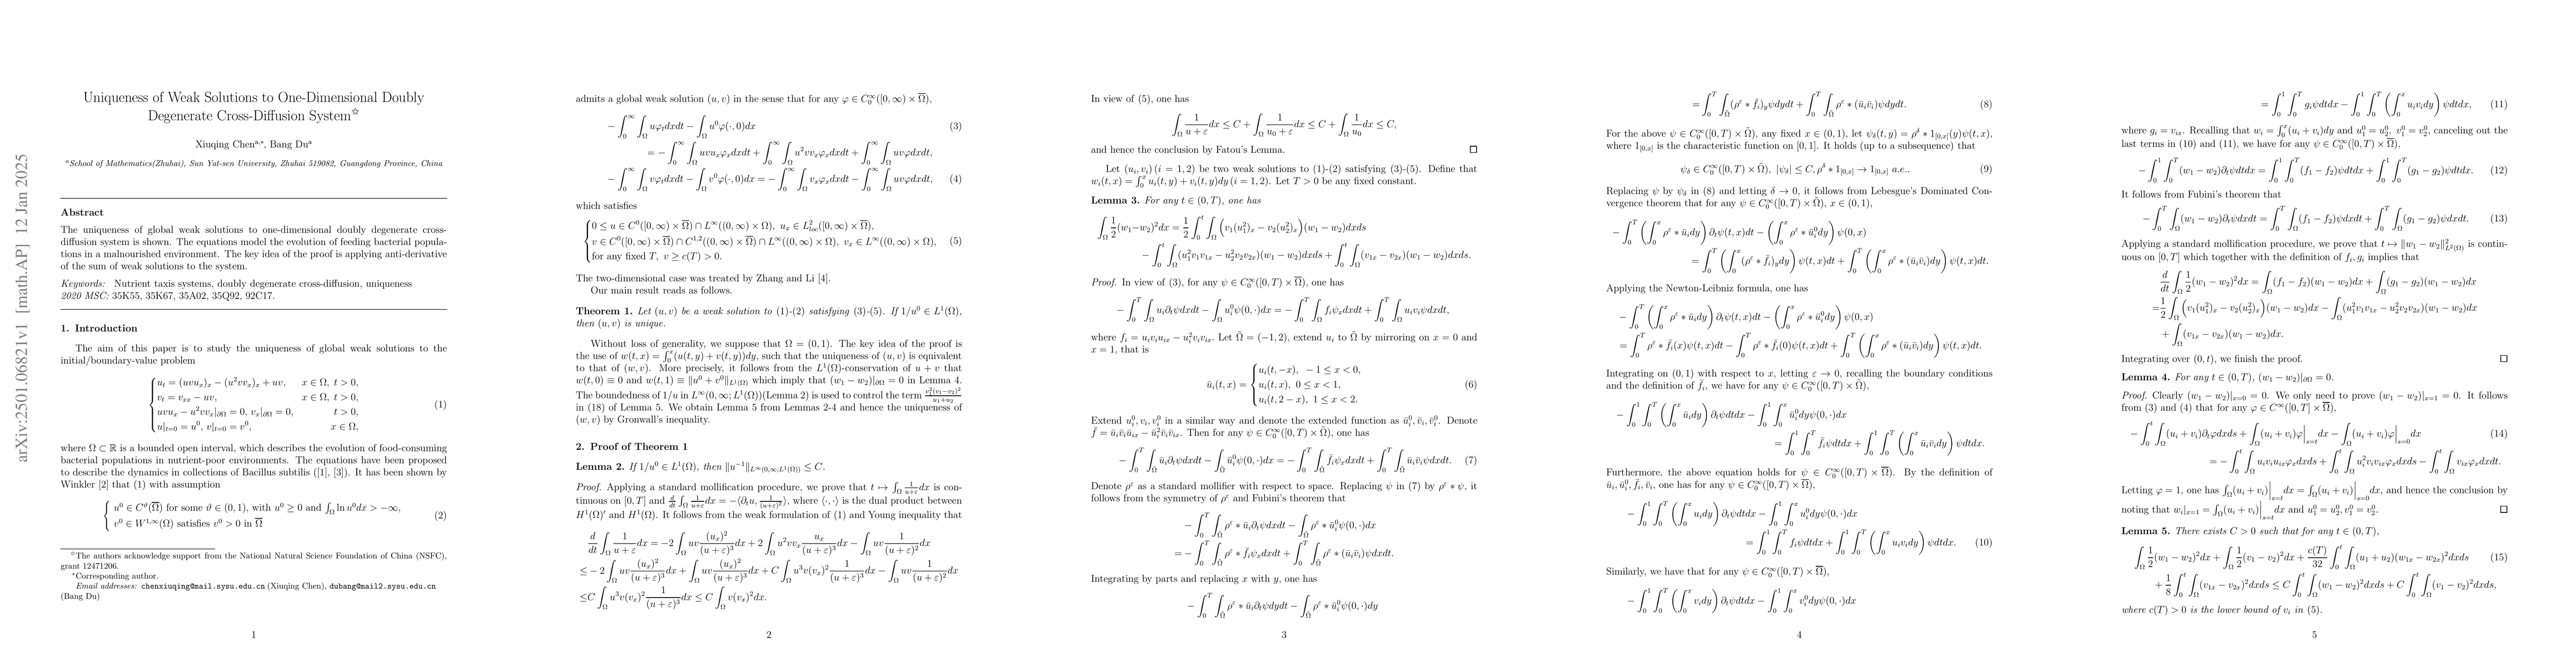 arXiv:2501.06821v1 [math.AP] 12 Jan 2025
Uniqueness of Weak Solutions to One-Dimensional Doubly
Degenerate Cross-Diffusion System☆
Xiuqing Chen^{a,∗}, Bang Du^a
^aSchool of Mathematics(Zhuhai), Sun Yat-sen University, Zhuhai 519082, Guangdong Province, China
Abstract
The uniqueness of global weak solutions to one-dimensional doubly degenerate cross-
diffusion system is shown. The equations model the evolution of feeding bacterial popula-
tions in a malnourished environment. The key idea of the proof is applying anti-derivative
of the sum of weak solutions to the system.
Keywords: Nutrient taxis systems, doubly degenerate cross-diffusion, uniqueness
2020 MSC: 35K55, 35K67, 35A02, 35Q92, 92C17.
1. Introduction
The aim of this paper is to study the uniqueness of global weak solutions to the
initial/boundary-value problem
{ u_t = (uvu_x)_x − (u²vv_x)_x + uv, x ∈ Ω, t > 0,
v_t = v_{xx} − uv, x ∈ Ω, t > 0,
uvu_x − u²vv_x|_{∂Ω} = 0, v_x|_{∂Ω} = 0, t > 0,
u|_{t=0} = u^0, v|_{t=0} = v^0, x ∈ Ω, (1)
where Ω ⊂ ℝ is a bounded open interval, which describes the evolution of food-consuming
bacterial populations in nutrient-poor environments. The equations have been proposed
to describe the dynamics in collections of Bacillus subtilis ([1], [3]). It has been shown by
Winkler [2] that (1) with assumption
{ u^0 ∈ C^ϑ(Ω̅) for some ϑ ∈ (0, 1), with u^0 ≥ 0 and ∫_Ω ln u^0 dx > −∞,
v^0 ∈ W^{1,∞}(Ω) satisfies v^0 > 0 in Ω̅ (2)
☆The authors acknowledge support from the National Natural Science Foundation of China (NSFC),
grant 12471206.
∗Corresponding author.
Email addresses: chenxiuqing@mail.sysu.edu.cn (Xiuqing Chen), dubang@mail2.sysu.edu.cn
(Bang Du)
1
admits a global weak solution (u, v) in the sense that for any φ ∈ C_0^∞([0, ∞) × Ω̅),
− ∫_0^∞ ∫_Ω uφ_t dxdt − ∫_Ω u^0 φ(·, 0)dx (3)
= − ∫_0^∞ ∫_Ω uvu_x φ_x dxdt + ∫_0^∞ ∫_Ω u²vv_x φ_x dxdt + ∫_0^∞ ∫_Ω uvφ dxdt,
− ∫_0^∞ ∫_Ω vφ_t dxdt − ∫_Ω v^0 φ(·, 0)dx = − ∫_0^∞ ∫_Ω v_x φ_x dxdt − ∫_0^∞ ∫_Ω uvφ dxdt, (4)
which satisfies
{ 0 ≤ u ∈ C^0([0, ∞) × Ω̅) ∩ L^∞((0, ∞) × Ω), u_x ∈ L²_{loc}([0, ∞) × Ω̅),
v ∈ C^0([0, ∞) × Ω̅) ∩ C^{1,2}((0, ∞) × Ω̅) ∩ L^∞((0, ∞) × Ω), v_x ∈ L^∞((0, ∞) × Ω), (5)
for any fixed T, v ≥ c(T) > 0.
The two-dimensional case was treated by Zhang and Li [4].
Our main result reads as follows.
Theorem 1. Let (u, v) be a weak solution to (1)-(2) satisfying (3)-(5). If 1/u^0 ∈ L^1(Ω),
then (u, v) is unique.
Without loss of generality, we suppose that Ω = (0, 1). The key idea of the proof is
the use of w(t, x) = ∫_0^x (u(t, y) + v(t, y))dy, such that the uniqueness of (u, v) is equivalent
to that of (w, v). More precisely, it follows from the L^1(Ω)-conservation of u + v that
w(t, 0) ≡ 0 and w(t, 1) ≡ ‖u^0 + v^0‖_{L^1(Ω)} which imply that (w_1 − w_2)|_{∂Ω} = 0 in Lemma 4.
The boundedness of 1/u in L^∞(0, ∞; L^1(Ω))(Lemma 2) is used to control the term v_1²(v_1−v_2)²/(u_1+u_2)
in (18) of Lemma 5. We obtain Lemma 5 from Lemmas 2-4 and hence the uniqueness of
(w, v) by Gronwall's inequality.
2. Proof of Theorem 1
Lemma 2. If 1/u^0 ∈ L^1(Ω), then ‖u^{-1}‖_{L^∞(0,∞;L^1(Ω))} ≤ C.
Proof. Applying a standard mollification procedure, we prove that t ↦ ∫_Ω 1/(u+ε) dx is con-
tinuous on [0, T] and d/dt ∫_Ω 1/(u+ε) dx = −⟨∂_t u, 1/(u+ε)²⟩, where ⟨·, ·⟩ is the dual product between
H^1(Ω)′ and H^1(Ω). It follows from the weak formulation of (1) and Young inequality that
d/dt ∫_Ω 1/(u + ε) dx = −2 ∫_Ω uv (u_x)²/(u + ε)³ dx + 2 ∫_Ω u²vv_x u_x/(u + ε)³ dx − ∫_Ω uv 1/(u + ε)² dx
≤ − 2 ∫_Ω uv (u_x)²/(u + ε)³ dx + ∫_Ω uv (u_x)²/(u + ε)³ dx + C ∫_Ω u³v(v_x)² 1/(u + ε)³ dx − ∫_Ω uv 1/(u + ε)² dx
≤C ∫_Ω u³v(v_x)² 1/(u + ε)³ dx ≤ C ∫_Ω v(v_x)² dx.
2
In view of (5), one has
∫_Ω 1/(u + ε) dx ≤ C + ∫_Ω 1/(u_0 + ε) dx ≤ C + ∫_Ω 1/u_0 dx ≤ C,
and hence the conclusion by Fatou's Lemma. □
Let (u_i, v_i) (i = 1, 2) be two weak solutions to (1)-(2) satisfying (3)-(5). Define that
w_i(t, x) = ∫_0^x u_i(t, y) + v_i(t, y)dy (i = 1, 2). Let T > 0 be any fixed constant.
Lemma 3. For any t ∈ (0, T), one has
∫_Ω 1/2 (w_1−w_2)² dx = 1/2 ∫_0^t ∫_Ω (v_1(u_1²)_x − v_2(u_2²)_x)(w_1 − w_2)dxds
− ∫_0^t ∫_Ω (u_1²v_1v_{1x} − u_2²v_2v_{2x})(w_1 − w_2)dxds + ∫_0^t ∫_Ω (v_{1x} − v_{2x})(w_1 − w_2)dxds.
Proof. In view of (3), for any ψ ∈ C_0^∞([0, T) × Ω̅), one has
− ∫_0^T ∫_Ω u_i ∂_t ψ dxdt − ∫_Ω u_i^0 ψ(0, ·)dx = − ∫_0^T ∫_Ω f_i ψ_x dxdt + ∫_0^T ∫_Ω u_i v_i ψ dxdt,
where f_i = u_i v_i u_{ix} − u_i² v_i v_{ix}. Let Ω̃ = (−1, 2), extend u_i to Ω̃ by mirroring on x = 0 and
x = 1, that is
ū_i(t, x) = { u_i(t, −x), − 1 < x < 0,
u_i(t, x), 0 ≤ x < 1, (6)
u_i(t, 2 − x), 1 ≤ x < 2.
Extend u_i^0, v_i, v_i^0 in a similar way and denote the extended function as ū_i^0, v̄_i, v̄_i^0. Denote
f̄ = ū_i v̄_i ū_{ix} − ū_i² v̄_i v̄_{ix}. Then for any ψ ∈ C_0^∞([0, T) × Ω̃), one has
− ∫_0^T ∫_Ω̃ ū_i ∂_t ψ dxdt − ∫_Ω̃ ū_i^0 ψ(0, ·)dx = − ∫_0^T ∫_Ω̃ f̄_i ψ_x dxdt + ∫_0^T ∫_Ω̃ ū_i v̄_i ψ dxdt. (7)
Denote ρ^ε as a standard mollifier with respect to space. Replacing ψ in (7) by ρ^ε ∗ ψ, it
follows from the symmetry of ρ^ε and Fubini's theorem that
− ∫_0^T ∫_Ω̃ ρ^ε ∗ ū_i ∂_t ψ dxdt − ∫_Ω̃ ρ^ε ∗ ū_i^0 ψ(0, ·)dx
= − ∫_0^T ∫_Ω̃ ρ^ε ∗ f̄_i ψ_x dxdt + ∫_0^T ∫_Ω̃ ρ^ε ∗ (ū_i v̄_i)ψ dxdt.
Integrating by parts and replacing x with y, one has
− ∫_0^T ∫_Ω̃ ρ^ε ∗ ū_i ∂_t ψ dydt − ∫_Ω̃ ρ^ε ∗ ū_i^0 ψ(0, ·)dy
3
= ∫_0^T ∫_Ω̃ (ρ^ε ∗ f̄_i)_y ψ dydt + ∫_0^T ∫_Ω̃ ρ^ε ∗ (ū_i v̄_i)ψ dydt. (8)
For the above ψ ∈ C_0^∞([0, T) × Ω̃), any fixed x ∈ (0, 1), let ψ_δ(t, y) = ρ^δ ∗ 1_{[0,x]}(y)ψ(t, x),
where 1_{[0,x]} is the characteristic function on [0, 1]. It holds (up to a subsequence) that
ψ_δ ∈ C_0^∞([0, T) × Ω̃), |ψ_δ| ≤ C, ρ^δ ∗ 1_{[0,x]} → 1_{[0,x]} a.e.. (9)
Replacing ψ by ψ_δ in (8) and letting δ → 0, it follows from Lebesgue's Dominated Con-
vergence theorem that for any ψ ∈ C_0^∞([0, T) × Ω̃), x ∈ (0, 1),
− ∫_0^T (∫_0^x ρ^ε ∗ ū_i dy) ∂_t ψ(t, x)dt − (∫_0^x ρ^ε ∗ ū_i^0 dy) ψ(0, x)
= ∫_0^T (∫_0^x (ρ^ε ∗ f̄_i)_y dy) ψ(t, x)dt + ∫_0^T (∫_0^x ρ^ε ∗ (ū_i v̄_i)dy) ψ(t, x)dt.
Applying the Newton-Leibniz formula, one has
− ∫_0^T (∫_0^x ρ^ε ∗ ū_i dy) ∂_t ψ(t, x)dt − (∫_0^x ρ^ε ∗ ū_i^0 dy) ψ(0, x)
= ∫_0^T ρ^ε ∗ f̄_i(x)ψ(t, x)dt − ∫_0^T ρ^ε ∗ f̄_i(0)ψ(t, x)dt + ∫_0^T (∫_0^x ρ^ε ∗ (ū_i v̄_i)dy) ψ(t, x)dt.
Integrating on (0, 1) with respect to x, letting ε → 0, recalling the boundary conditions
and the definition of f̄_i, we have for any ψ ∈ C_0^∞([0, T) × Ω̃),
− ∫_0^1 ∫_0^T (∫_0^x ū_i dy) ∂_t ψ dtdx − ∫_0^1 ∫_0^x ū_i^0 dy ψ(0, ·)dx
= ∫_0^1 ∫_0^T f̄_i ψ dtdx + ∫_0^1 ∫_0^T (∫_0^x ū_i v̄_i dy) ψ dtdx.
Furthermore, the above equation holds for ψ ∈ C_0^∞([0, T) × Ω̅). By the definition of
ū_i, ū_i^0, f̄_i, v̄_i, one has for any ψ ∈ C_0^∞([0, T) × Ω̅),
− ∫_0^1 ∫_0^T (∫_0^x u_i dy) ∂_t ψ dtdx − ∫_0^1 ∫_0^x u_i^0 dy ψ(0, ·)dx
= ∫_0^1 ∫_0^T f_i ψ dtdx + ∫_0^1 ∫_0^T (∫_0^x u_i v_i dy) ψ dtdx. (10)
Similarly, we have that for any ψ ∈ C_0^∞([0, T) × Ω̅),
− ∫_0^1 ∫_0^T (∫_0^x v_i dy) ∂_t ψ dtdx − ∫_0^1 ∫_0^x v_i^0 dy ψ(0, ·)dx
4
= ∫_0^1 ∫_0^T g_i ψ dtdx − ∫_0^1 ∫_0^T (∫_0^x u_i v_i dy) ψ dtdx, (11)
where g_i = v_{ix}. Recalling that w_i = ∫_0^x (u_i + v_i)dy and u_1^0 = u_2^0, v_1^0 = v_2^0, canceling out the
last terms in (10) and (11), we have for any ψ ∈ C_0^∞([0, T) × Ω̅),
− ∫_0^1 ∫_0^T (w_1 − w_2)∂_t ψ dtdx = ∫_0^1 ∫_0^T (f_1 − f_2)ψ dtdx + ∫_0^1 ∫_0^T (g_1 − g_2)ψ dtdx. (12)
It follows from Fubini's theorem that
− ∫_0^T ∫_Ω (w_1 − w_2)∂_t ψ dxdt = ∫_0^T ∫_Ω (f_1 − f_2)ψ dxdt + ∫_0^T ∫_Ω (g_1 − g_2)ψ dxdt. (13)
Applying a standard mollification procedure, we prove that t ↦ ‖w_1 − w_2‖²_{L²(Ω)} is contin-
uous on [0, T] which together with the definition of f_i, g_i implies that
d/dt ∫_Ω 1/2 (w_1 − w_2)² dx = ∫_Ω (f_1 − f_2)(w_1 − w_2)dx + ∫_Ω (g_1 − g_2)(w_1 − w_2)dx
= 1/2 ∫_Ω (v_1(u_1²)_x − v_2(u_2²)_x)(w_1 − w_2)dx − ∫_Ω (u_1²v_1v_{1x} − u_2²v_2v_{2x})(w_1 − w_2)dx
+ ∫_Ω (v_{1x} − v_{2x})(w_1 − w_2)dx.
Integrating over (0, t), we finish the proof. □
Lemma 4. For any t ∈ (0, T), (w_1 − w_2)|_{∂Ω} = 0.
Proof. Clearly (w_1 − w_2)|_{x=0} = 0. We only need to prove (w_1 − w_2)|_{x=1} = 0. It follows
from (3) and (4) that for any φ ∈ C^∞([0, T] × Ω̅),
− ∫_0^t ∫_Ω (u_i + v_i)∂_t φ dxds + ∫_Ω (u_i + v_i)φ|_{s=t} dx − ∫_Ω (u_i + v_i)φ|_{s=0} dx (14)
= − ∫_0^t ∫_Ω u_i v_i u_{ix} φ_x dxds + ∫_0^t ∫_Ω u_i² v_i v_{ix} φ_x dxds − ∫_0^t ∫_Ω v_{ix} φ_x dxdt.
Letting φ = 1, one has ∫_Ω (u_i + v_i)|_{s=t} dx = ∫_Ω (u_i + v_i)|_{s=0} dx, and hence the conclusion by
noting that w_i|_{x=1} = ∫_Ω (u_i + v_i)|_{s=t} dx and u_1^0 = u_2^0, v_1^0 = v_2^0. □
Lemma 5. There exists C > 0 such that for any t ∈ (0, T),
∫_Ω 1/2 (w_1 − w_2)² dx + ∫_Ω 1/2 (v_1 − v_2)² dx + c(T)/32 ∫_0^t ∫_Ω (u_1 + u_2)(w_{1x} − w_{2x})² dxds (15)
+ 1/8 ∫_0^t ∫_Ω (v_{1x} − v_{2x})² dxds ≤ C ∫_0^t ∫_Ω (w_1 − w_2)² dxds + C ∫_0^t ∫_Ω (v_1 − v_2)² dxds,
where c(T) > 0 is the lower bound of v_i in (5).
5